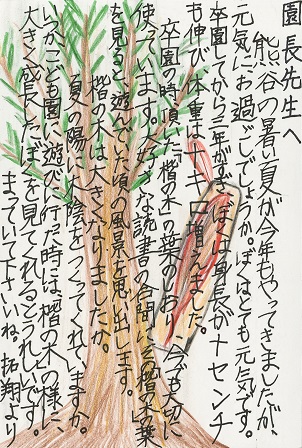 園長先生へ
熊谷の暑い夏が今年もやってきましたが、
元気にお過ごしでしょうか。ぼくはとても元気です。
卒園してから三年がすぎ、ぼくは身長が十センチ
も伸び、体重は キロ増えました。
卒園の時、頂いた「楷の木」の葉のしおり、今でも大切に
使っています。大好きな読書の合間にその楷の木の葉
を見ると、遊んでいた頃の風景を思い出します。
楷の木は、大きくなりましたか。
夏の陽に、木陰をつくってくれてますか。
いつかこども園に遊びに行た時には、楷の木の様に、
大きく成長したぼくを見てくれるとうれしいです。
まっていて下さいね。拓翔より